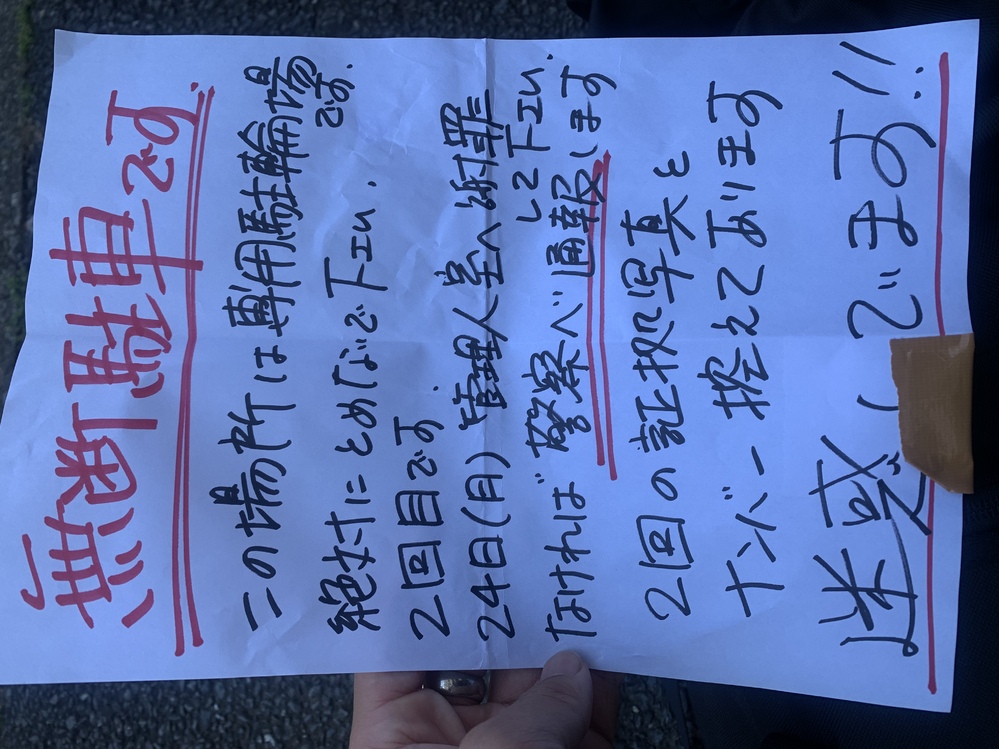 無断駐車です
この場所は専用駐輪場です.
絶対にとめないで下さい.
2回目です
24日(月)管理人室へ謝罪して下さい.
なければ警察へ通報します
2回の証拠写真と
ナンバー控えてあります
迷惑してます!!